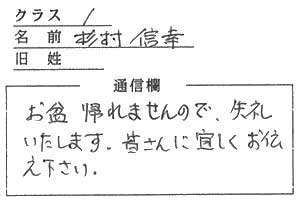 クラス 1
名前 杉村 信幸
旧姓
通信欄
お盆 帰れませんので、失礼
いたします。皆さんに宜しくお伝
え下さい。